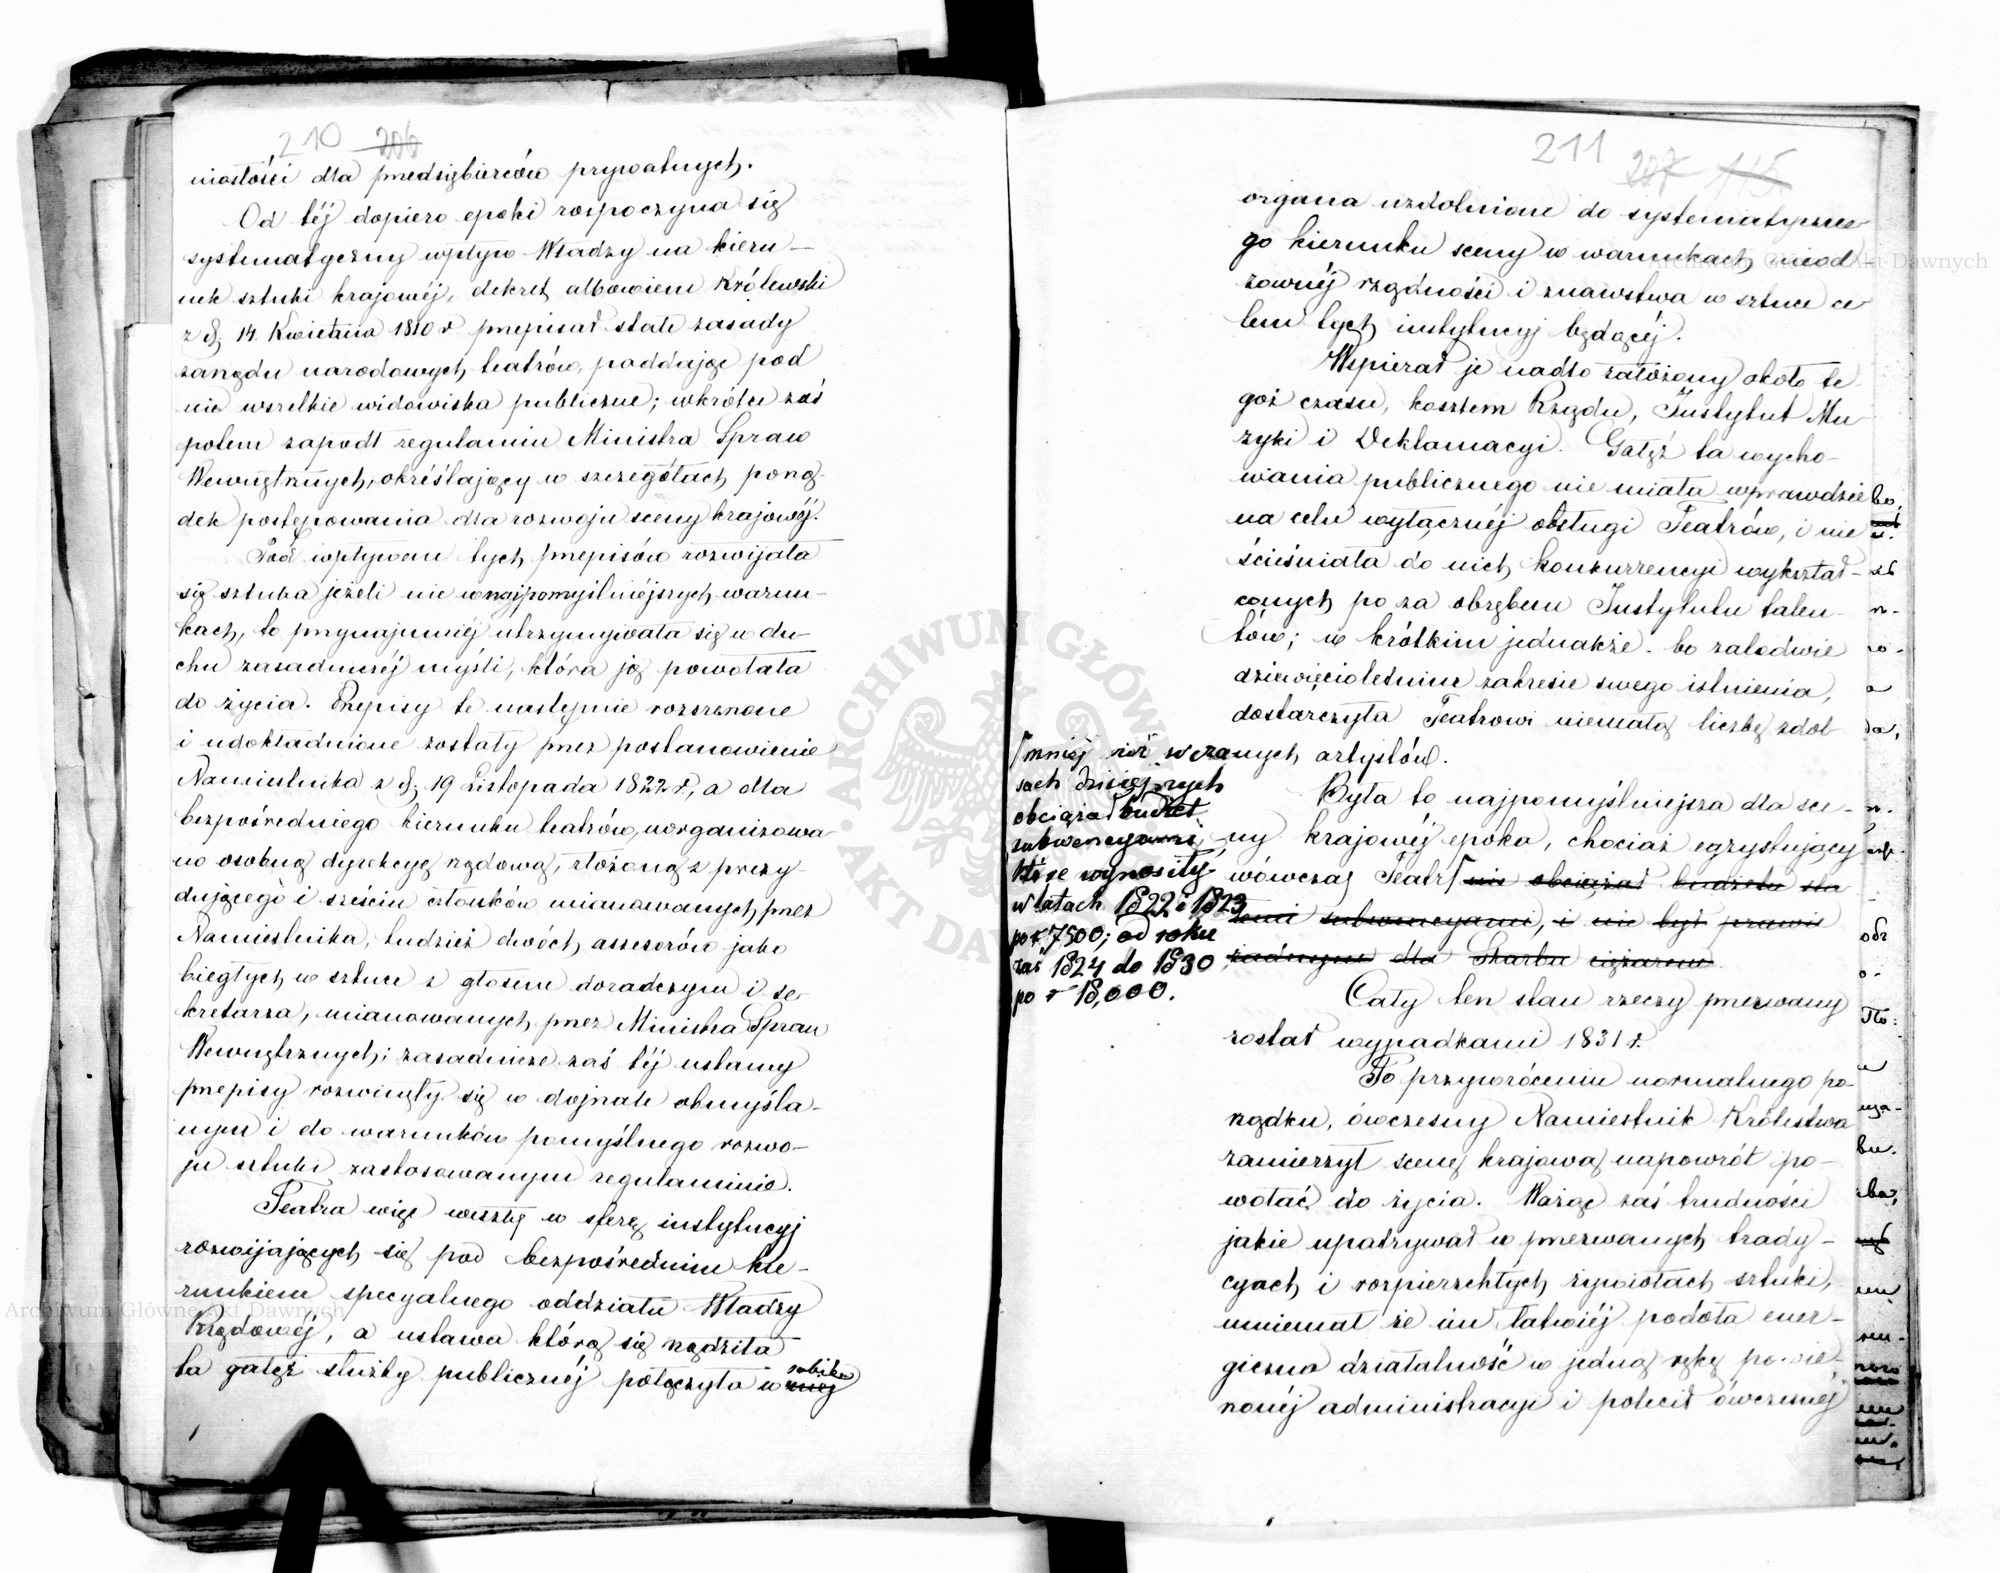 210 206
miałości dla przedsiębierców prywatnych.
Od téj dopiero epoki rozpoczyna się
systematyczny wpływ Władzy na kieru-
nek sztuki krajowéj, dekret albowiem Królewski
z d. 14. Kwietnia 1810 r. przepisał stałe zasady
zarządu narodowych teatrów, poddając pod
nie wszelkie widowiska publiczne; wkrótce zaś
potem zapadł regulamin Ministra Spraw
Wewnętrznych, określający w szczegółach porzą-
dek postępowania dla rozwoju sceny krajowéj.
Pod wpływem tych przepisów rozwijała
się sztuka jeżeli nie w najpomyślniéjszych warun-
kach, to przynajmniéj utrzymywała się w du-
chu zasadniczéj myśli, która ją powołała
do życia. Przepisy te następnie rozszerzone
i udokładnione zostały przez postanowienie
Namiestnika z d. 19 Listopada 1822 r., a dla
bezpośredniego kierunku teatrów, uorganizowa-
no osobną dyrekcyę rządową, złożoną z prezy-
dującego i sześciu członków mianowanych przez
Namiestnika, tudzież dwóch assesorów jako
biegłych w sztuce z głosem doradczym i se-
kretarza, mianowanych przez Ministra Spraw
Wewnętrznych; zasadnicze zaś téj ustawy
przepisy rozwinęły się w dojrzale obmyśla-
nym i do warunków pomyślnego rozwo-
ju sztuki zastosowanym regulaminie.
Teatra więc weszły w sferę instytucyj
rozwijających się pod bezpośrednim kie-
runkiem specyalnego oddziału Władzy
Rządowéj, a ustawa którą się rządziła
ta gałęź służby publicznéj połączyła w sobie
211 207 115
organa uzdolnione do systematyczne-
go kierunku sceny w warunkach nieod-
zownéj rządności i znawstwa w sztuce ce-
lem tych instytucyj będącéj.
Wspierał je nadto założony około te-
goż czasu, kosztem Rządu, Instytut Mu-
zyki i Deklamacyi. Gałęź ta wycho-
wania publicznego nie miała wprawdzie
na celu wyłącznéj obsługi Teatrów, i nie
ścieśniała do nich konkurrencyi wykształ-
conych po za obrębem Instytutu talen-
tów; w krótkim jednakże. bo zaledwie
dziewięcioletnim zakresie swego istnienia,
dostarczyła Teatrowi niemałą liczbę zdol-
nych artystów.
Była to najpomyślniejsza dla sce-
ny krajowéj epoka, chociaż egzystujący
wówczas Teatr nie obciążał budżetu sta
łemi subwencyami, i nie był prawie
żadnym dla Skarbu ciężarem.
mniéj niż w czasach dzisiejszych
obciążał budżet
subwencyami,
które wynosiły
w latach 1822 i 1823
po r. 7500; od roku
zaś 1824 do 1830
po r. 18,000.
Cały ten stan rzeczy przerwany
został wypadkami 1831 r.
Po przywróceniu normalnego po-
rządku, ówczesny Namiestnik Królestwa
zamierzył scenę krajową napowrót po-
wołać do życia. Ważąc zaś trudności
jakie upatrywał w przerwanych trady-
cyach i rozpierzchłych żywiołach sztuki,
mniemał że im łatwiéj podoła ener-
giczna działalność w jedną rękę powie-
rzonéj administracyi i polecił ówczesnéj